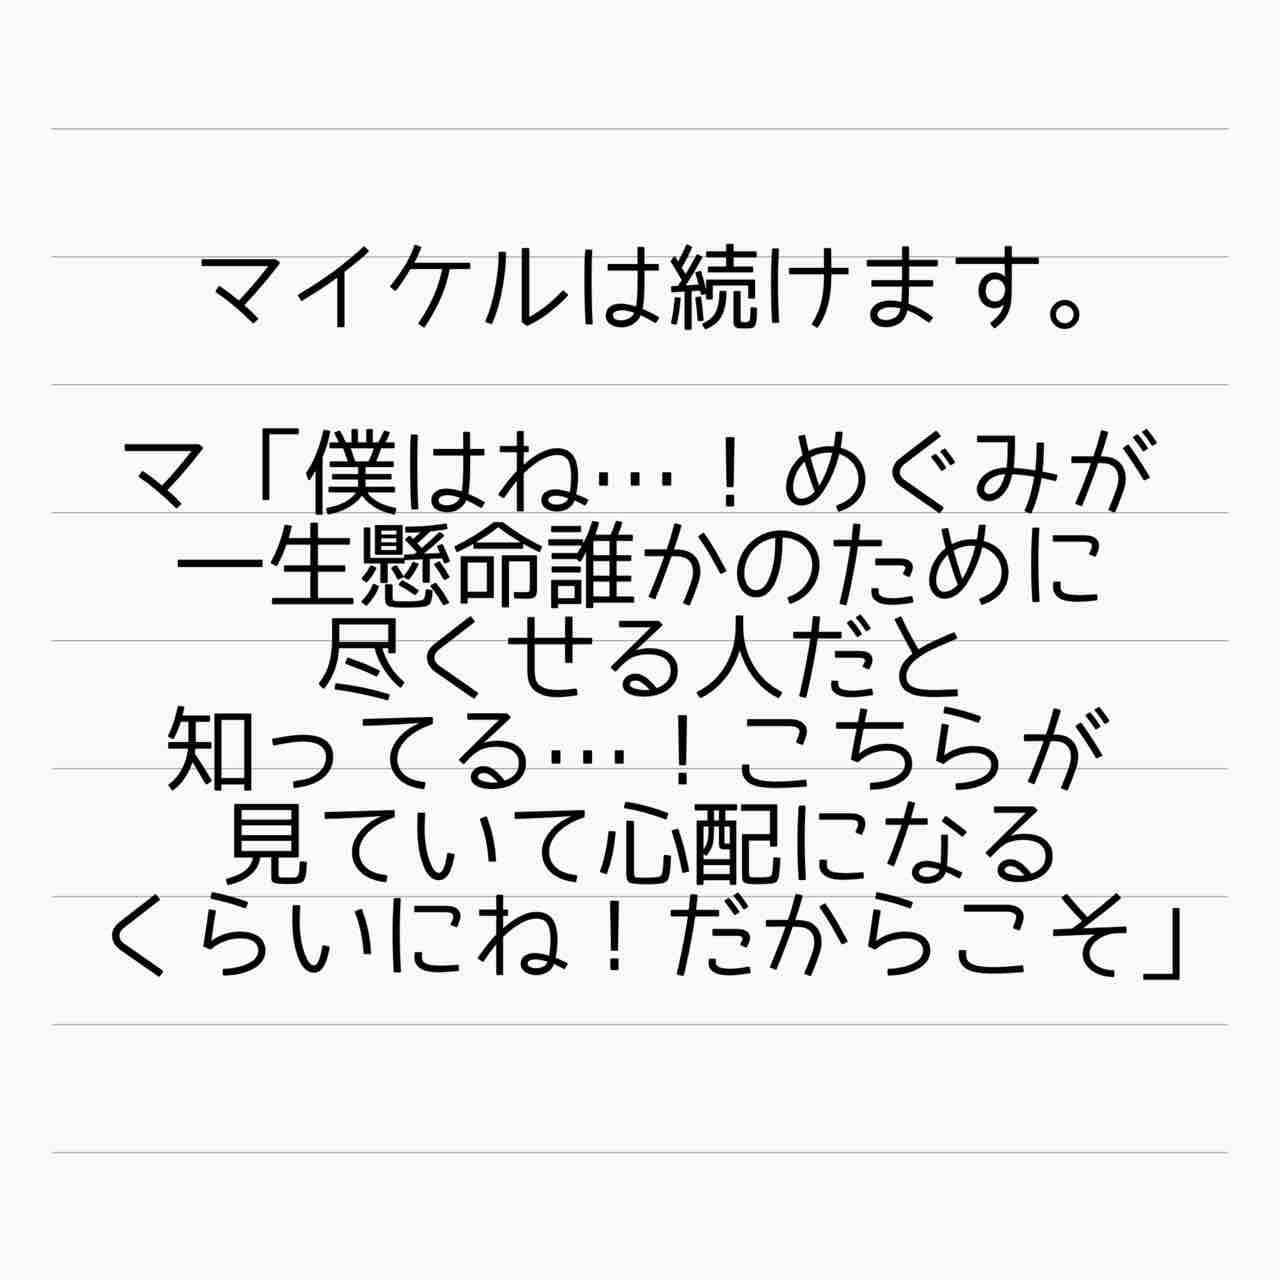 マイケルは続けます。
マ「僕はね…！めぐみが
一生懸命誰かのために
尽くせる人だと
知ってる…！こちらが
見ていて心配になる
くらいにね！だからこそ」